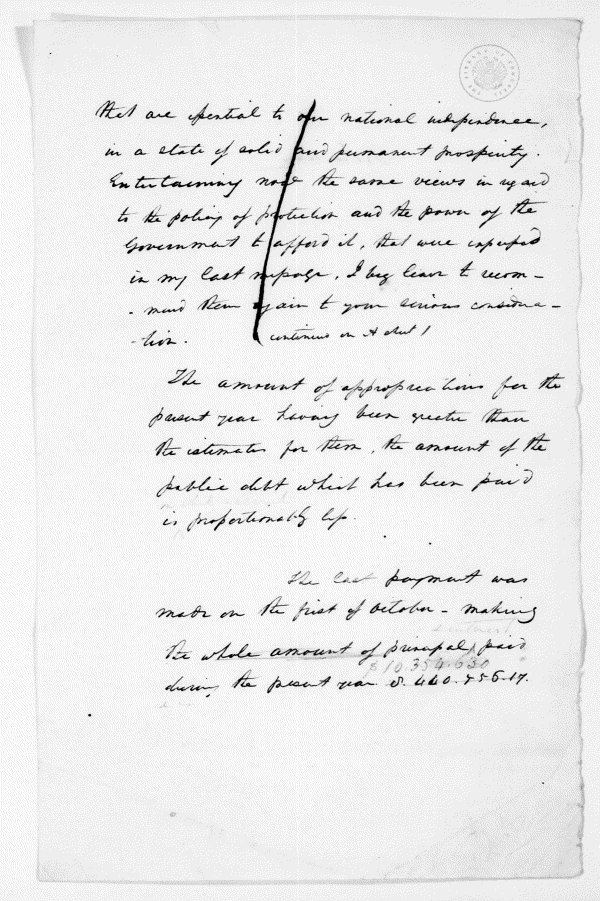 that are essential to our national independence,
in a state of solid and permanent prosperity.
Entertaining now the same views in regard
to the policy of protection and the power of the
Government to afford it, that were expressed
in my last message, I beg leave to recom-
-mend them again to your serious considera-
-tion. continues on A
The amount of appropriations for the
present year having been greater than
the estimates for them, the amount of the
public debt which has been paid
is proportionably less.
The last payment was
made on the first of October - making
the whole amount of principal paid
$10.354.630
during the present year 8.440.756.17.